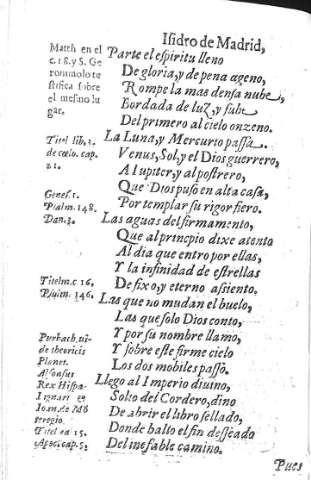 Isidro de Madrid,
Parte el espiritu lleno
De gloria, y de pena ageno,
Rompe la mas densa nube,
Bordada de luz, y sube
Del primero al cielo onzeno.
La Luna, y Mercurio passa,
Venus, Sol, y el Dios guerrero,
A Iupiter, y al postrero,
Que Dios puso en alta casa,
Por templar su rigor fiero.
Las aguas del firmamento,
Que al principio dixe atento
Al dia que entro por ellas,
Y la infinidad de estrellas
De fixo, y eterno assiento.
Las que no mudan el buelo,
Las que solo Dios conto,
Y por su nombre llamo,
Y sobre este firme cielo
Los dos mobiles passò.
Llego al Imperio diuino,
Solio del Cordero, dino
De abrir el libro sellado,
Donde hallo el fin desseado
Del inefable camino.
Pues
Matth en el
c. 18. y S. Ge
ronimolo te
stifica sobre
el mesmo lu
gar.
Titel lib. 3.
de cœlo. cap.
21.
Genes. 1.
Psalm. 148.
Dan. 3.
Titelm. c 16.
Psalm. 146.
Purbach, ui-
de theoricis
Planet.
Alfonsus
Rex Hispa-
Ioan. de Mõ
teregio.
Titel ca 15.
Apoc. cap. 5.